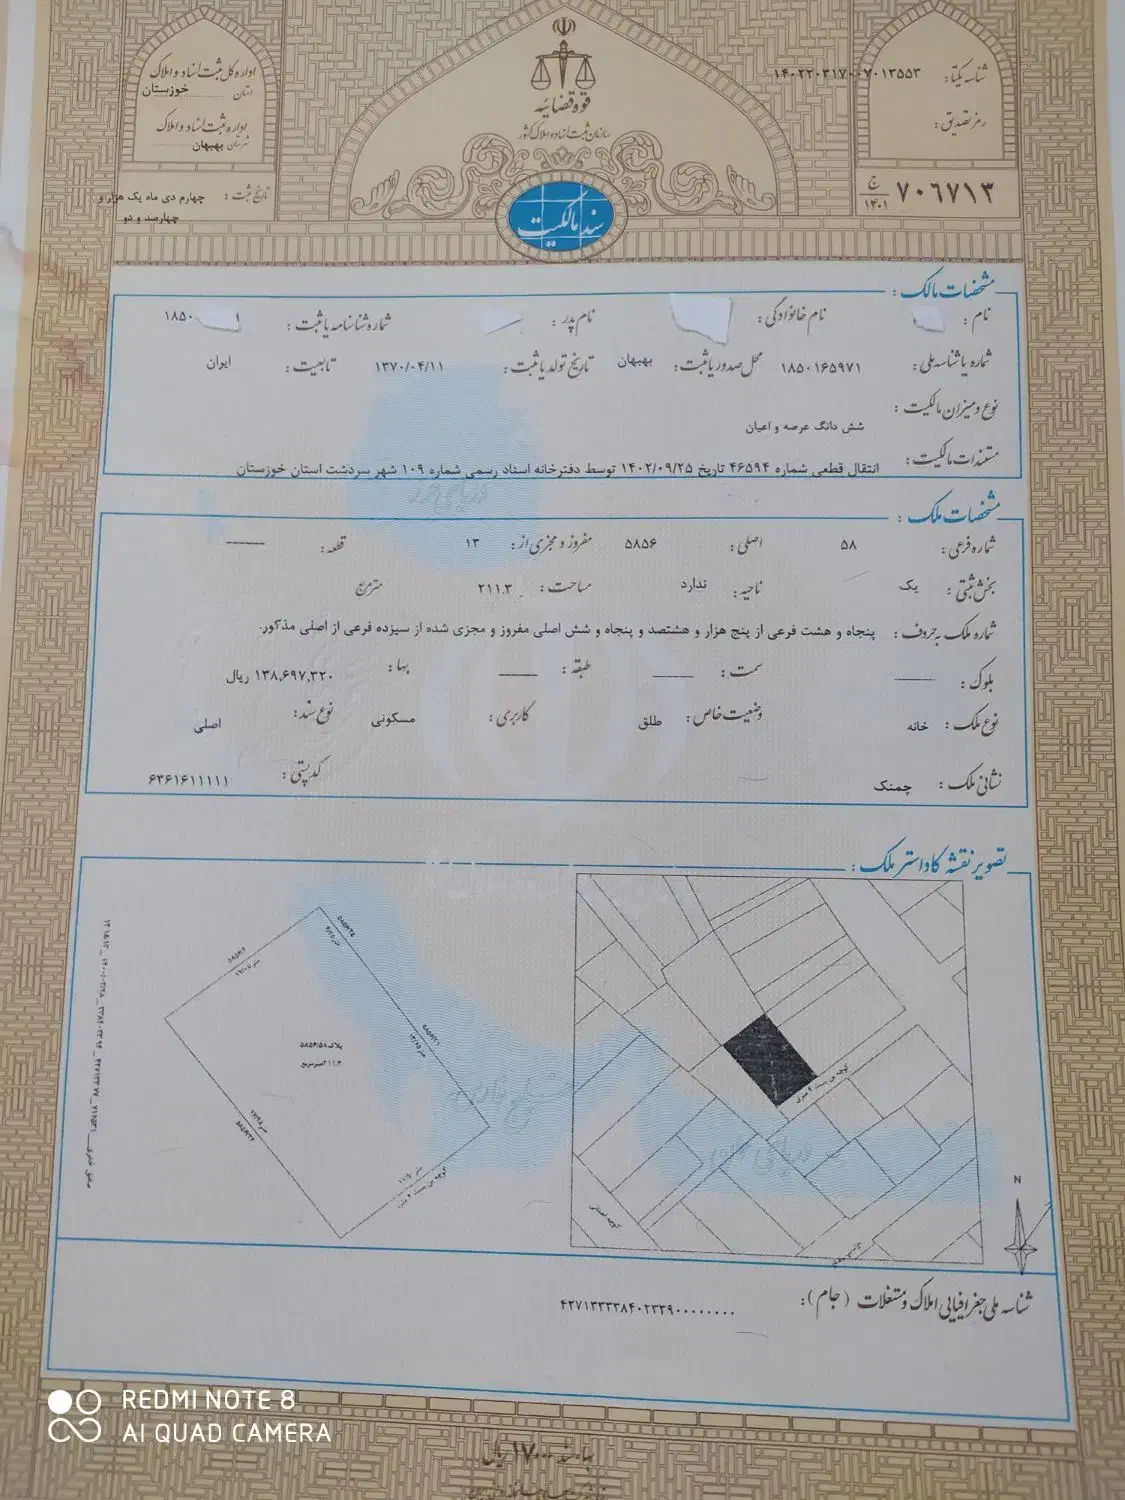 قوه قضائیه
سازمان ثبت اسناد و املاک کشور
سند مالکیت
شناسه یکتا: ۱۴۰۲۲۰۳۱۷۰۰۷۰۱۳۵۵۳
رمز تصدیق:
۷۰۶۷۱۳ ج ۱۴۰۱
اداره کل ثبت اسناد و املاک
استان خوزستان
اداره ثبت اسناد و املاک
شهرستان بهبهان
تاریخ ثبت: چهارم دی ماه یک هزار و
چهارصد و دو
مشخصات مالک:
نام: نام خانوادگی: نام پدر: شماره شناسنامه یا ثبت: ۱۸۵۰ ۱
شماره یا شناسه ملی: ۱۸۵۰۱۶۵۹۷۱ محل صدور یا ثبت: بهبهان تاریخ تولد یا ثبت: ۱۳۷۰/۰۴/۱۱ تابعیت: ایران
نوع و میزان مالکیت:
شش دانگ عرصه و اعیان
مستندات مالکیت: انتقال قطعی شماره ۴۶۵۹۴ تاریخ ۱۴۰۲/۰۹/۲۵ توسط دفترخانه اسناد رسمی شماره ۱۰۹ شهر سردشت استان خوزستان
مشخصات ملک:
شماره فرعی: ۵۸ اصلی: ۵۸۵۶ مفروز و مجزی از: ۱۳ قطعه: ———
بخش ثبتی: یک ناحیه: ندارد مساحت: ۲۱۱.۳ مترمربع
شماره ملک به حروف: پنجاه و هشت فرعی از پنج هزار و هشتصد و پنجاه و شش اصلی مفروز و مجزی شده از سیزده فرعی از اصلی مذکور.
بلوک: ——— سمت: ——— طبقه: ——— بها: ۱۳۸,۶۹۷,۳۲۰ ریال
نوع ملک: خانه وضعیت خاص: طلق کاربری: مسکونی نوع سند: اصلی
نشانی ملک: چمنک کد پستی: ۶۳۶۱۶۱۱۱۱۱
تصویر نقشه کاداستر ملک:
پلاک ۵۸۵۶/۵۸
۲۱۱.۳ مترمربع
کوچه بن بست ۶ متری
کوچه بن بست ۶ متری
N
دریای خزر
خلیج فارس
دریای عمان
شناسه ملی جغرافیایی املاک و مستغلات (جام): ۴۲۷۱۳۳۳۸۴۰۲۳۳۹۰۰۰۰۰۰۰۰
بهاء سند ۱۷۰۰۰۰ ریال
REDMI NOTE 8
AI QUAD CAMERA